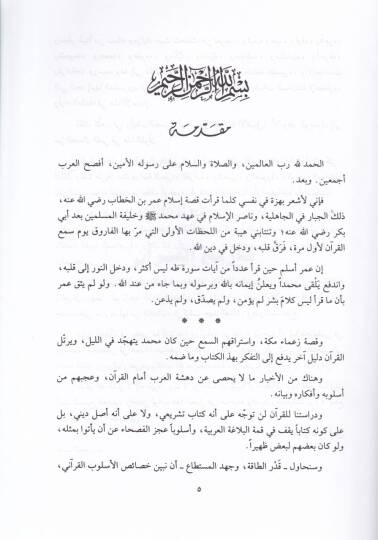 بسم الله الرحمن الرحيم
مقدمة
الحمد لله رب العالمين، والصلاة والسلام على رسوله الأمين، أفصح العرب
أجمعين. وبعد.
فإني لأشعر بهزة في نفسي كلما قرأت قصة إسلام عمر بن الخطاب رضي الله عنه،
ذلك الجبار في الجاهلية، وناصر الإسلام في عهد محمد ﷺ وخليفة المسلمين بعد أبي
بكر رضي الله عنه؛ وتنتابني هيبة من اللحظات الأولى التي مرّ بها الفاروق يوم سمع
القرآن لأول مرة، فَرَقَّ قلبه، ودخل في دين الله.
إن عمر أسلم حين قرأ عدداً من آيات سورة طه ليس أكثر، ودخل النور إلى قلبه،
واندفع يَلْقى محمداً ويعلنُ إيمانه بالله وبرسوله وبما جاء من عند الله. ولو لم يثق عمر
بأن ما قرأ ليس كلامَ بشر لم يؤمن، ولم يصدّق، ولم يذعن.
* * *
وقصة زعماء مكة، واستراقهم السمع حين كان محمد يتهجّد في الليل، ويرتّل
القرآن دليل آخر يدفع إلى التفكر بهذا الكتاب وما ضمه.
وهناك من الأخبار ما لا يحصى عن دهشة العرب أمام القرآن، وعجبهم من
أسلوبه وأفكاره وبيانه.
ودراستنا للقرآن لن توجّه على أنه كتاب تشريعي، ولا على أنه أصل ديني، بل
على كونه كتاباً يقف في قمة البلاغة العربية، وأسلوباً عجز الفصحاء عن أن يأتوا بمثله،
ولو كان بعضهم لبعض ظهيراً.
وسنحاول ـ قَدْر الطاقة، وجهد المستطاع ـ أن نبين خصائص الأسلوب القرآني،
٥